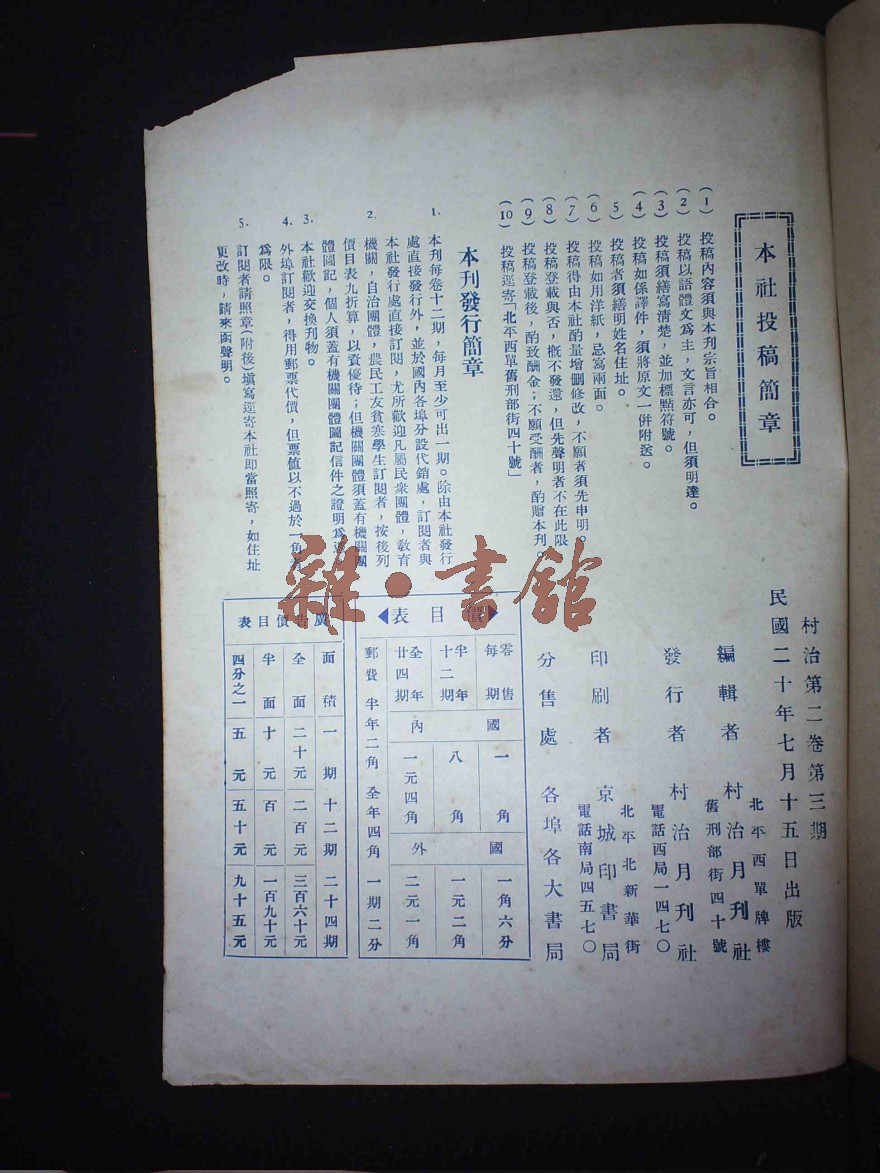 本社投稿簡章
(1) 投稿內容須與本刊宗旨相合。
(2) 投稿以語體文爲主，文言亦可，但須明達。
(3) 投稿須繕寫清楚，並加標點符號。
(4) 投稿如係譯件，須將原文一併附送。
(5) 投稿者須繕明姓名住址。
(6) 投稿如用洋紙，忌寫兩面。
(7) 投稿得由本社酌量增删修改，不願者須先申明。
(8) 投稿登載與否，槪不發還，但先聲明者不在此限。
(9) 投稿登載後，酌致酬金；不願受酬者，酌贈本刊。
(10) 投稿逕寄「北平西單舊刑部街四十號」
本刊發行簡章
1. 本刊每卷十二期，每月至少可出一期。除由本社發行
處直接發行外，並於國內各埠分設代銷處，訂閱者與
本社發行處直接訂閱，尤所歡迎凡屬民衆團體，敎育
2. 機關，自治團體，農民工友貧寒學生訂閱者，按後列
價目表九折算，以資優待；但機關團體須蓋有機關團
體圖記，個人須蓋有機關團體圖記信件之證明爲
3. 本社歡迎交換刊物。
4. 外埠訂閱者，得用郵票代價，但票值以不過於一角
爲限。
5. 訂閱者請照章(附後)填寫逕寄本社即當照寄，如住址
更改時，請來函聲明。
村治第二卷第三期
民國二十年七月十五日出版
編輯者 村治月刊社
北平西單牌樓
舊刑部街四十號
發行者 村治月刊社
電話西局一四七〇
印刷者 京城印書局
北平北新華街
電話南局四五七〇
分售處 各埠各大書局
價目表
零售每期 國內 一角 國外 一角六分
半年十二期 八角 一元二角
全年廿四期 一元四角 二元一角
郵費 半年二角 全年四角 一期二分
廣告價目表
面積 一期 十二期 二十四期
全面 二十元 二百元 三百六十元
半面 十元 百元 一百九十元
四分之一 五元 五十元 九十五元
雜·書館